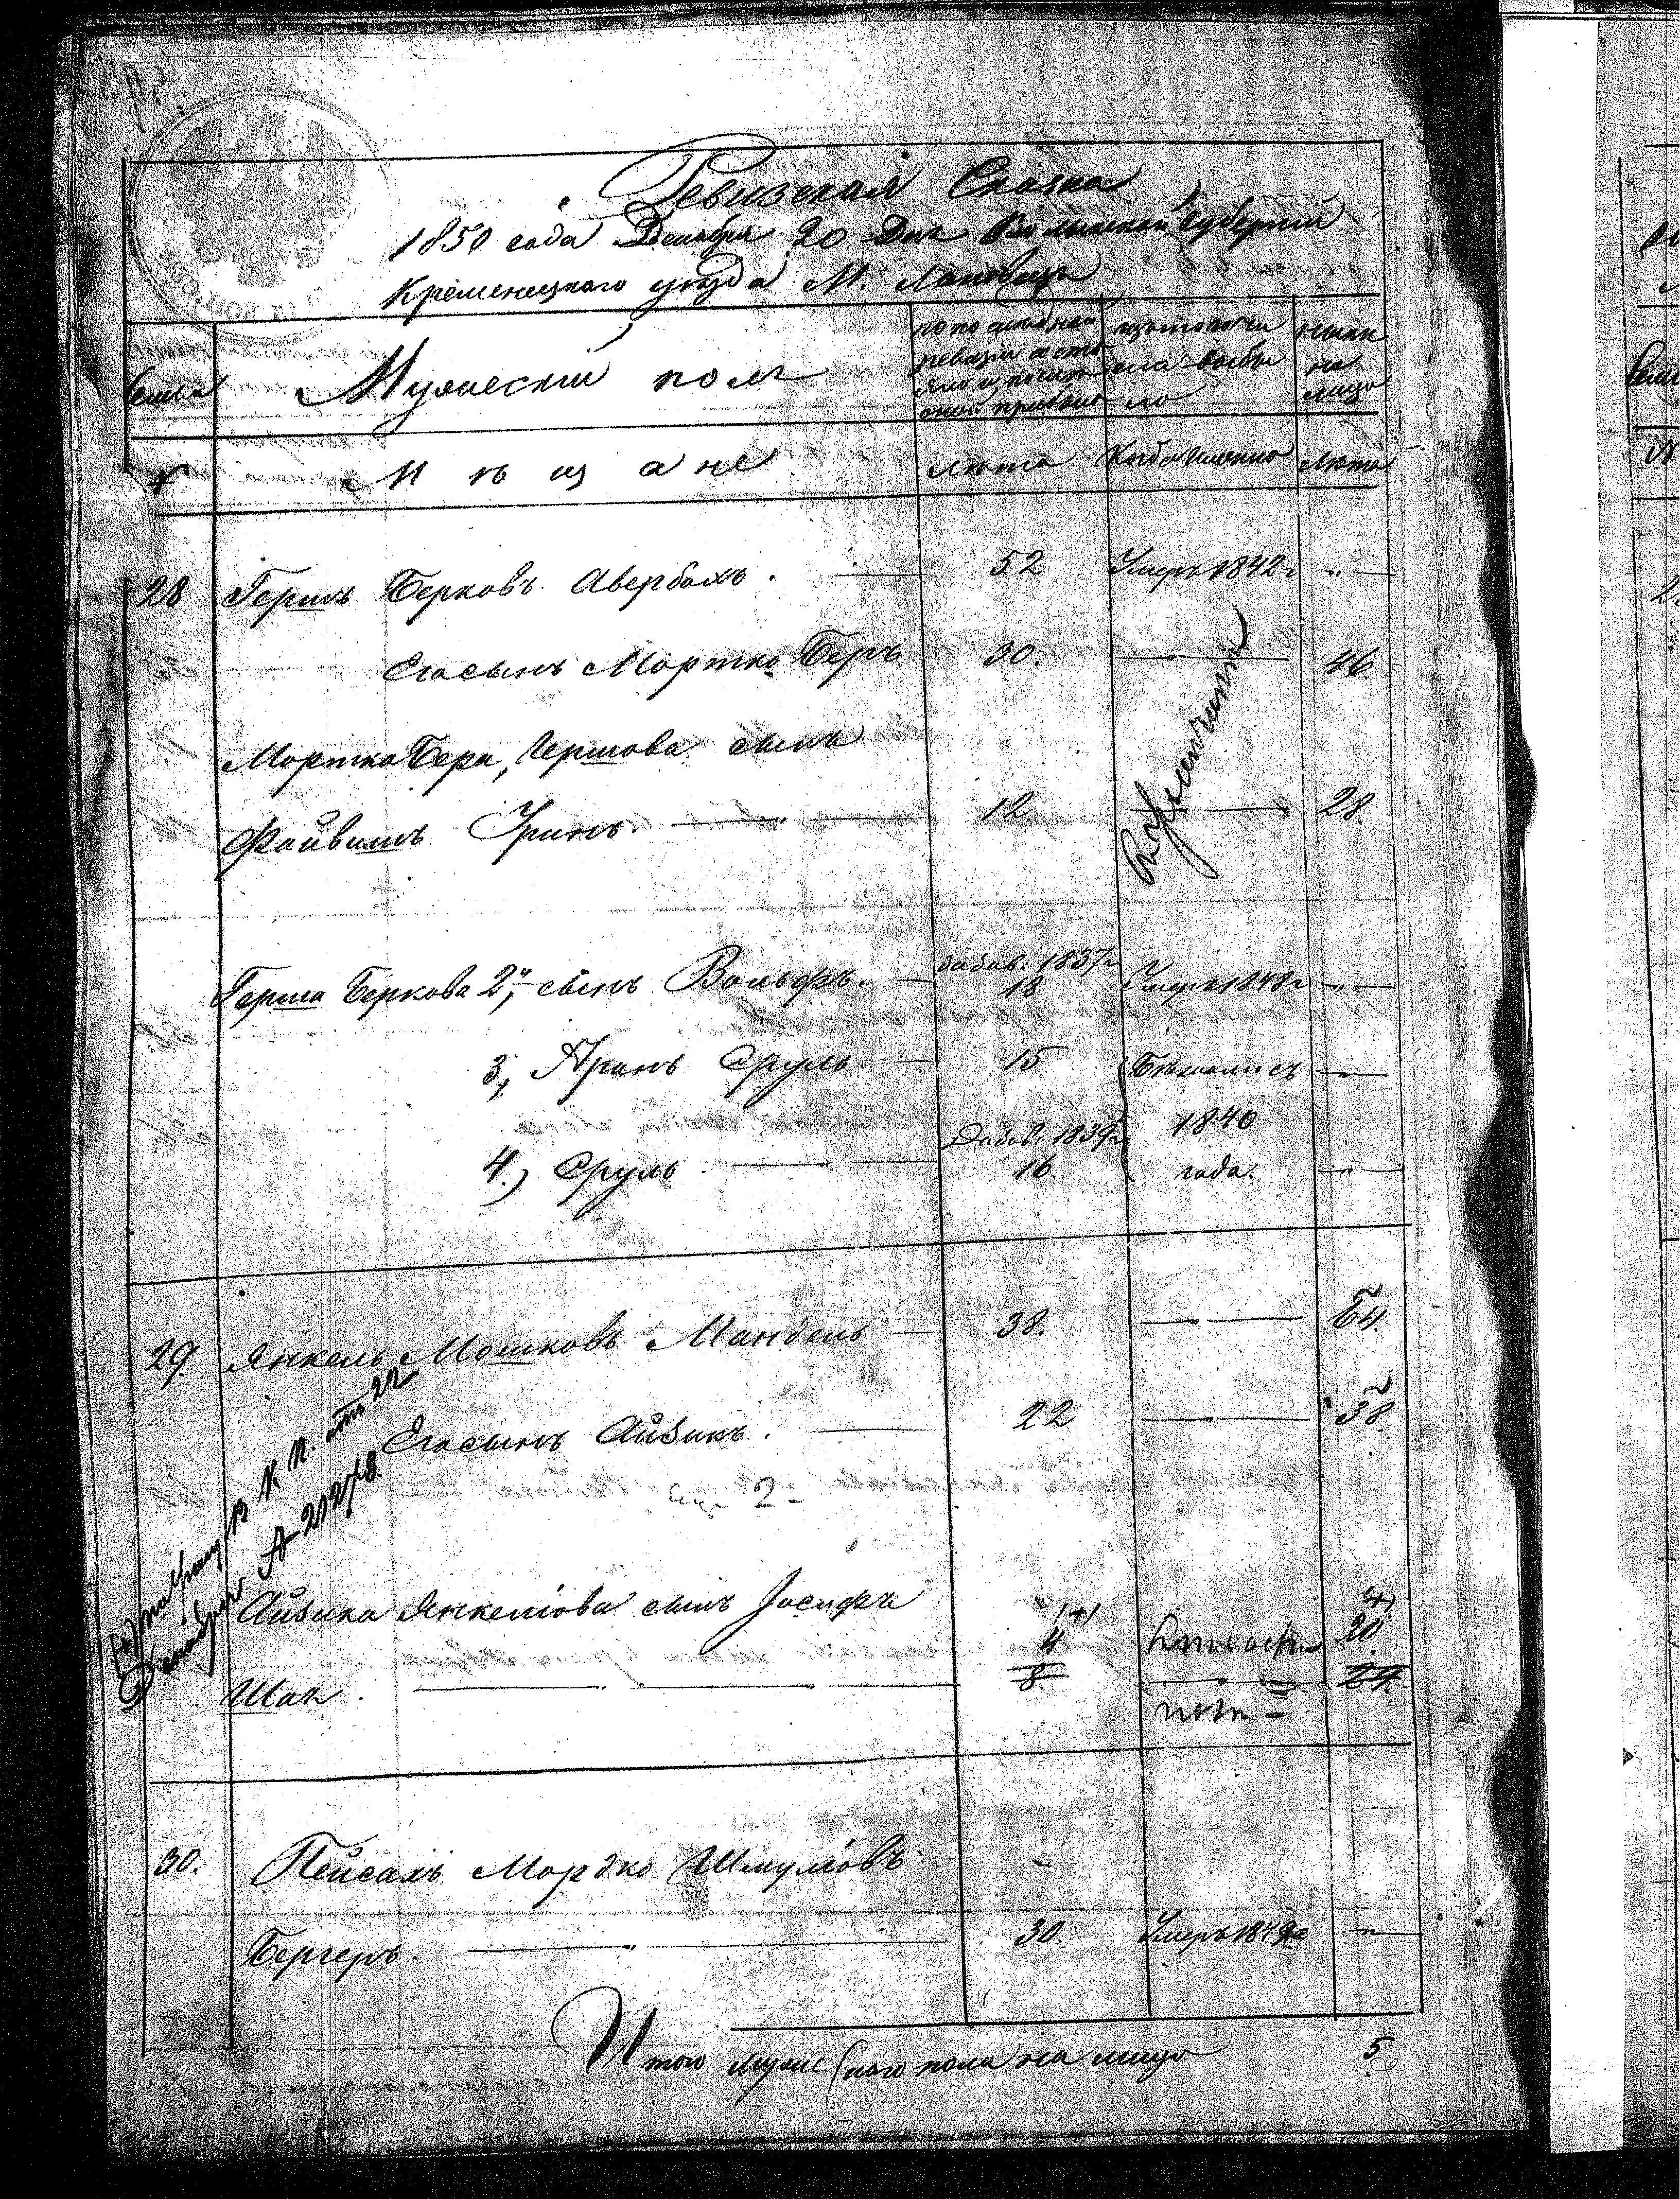 Ревизская Сказка
1850 года Декабря 20 Дня Волынской Губернии
Кременецкого уѣзда М. Лановецъ
Семьи
Мужескій полъ
по последней
ревизіи состо
яло и после
оной прибыло
изъ того чи
сла выбы
ло
ныне
на
лицо
№
Мѣщане
Лѣта
Когда именно
Лѣта
28 Герш Берковъ Авербахъ. 52 Умеръ 1842 г "
Его сынъ Мортко Беръ 30. " 46
Мортка Бера, Гершова сынъ
Файвишъ Гринъ. " 12. " 28.
Герша Беркова 2й, сынъ Вольфъ. добав. 1837 г 18 Умеръ 1848 г "
3, Аронъ Сруль. 15 Бѣжались "
4.) Сруль. Добав. 1839 г 16. 1840 года. "
29. Янкель Мошковъ Мандель 38. " 54.
Его сынъ Айзикъ. 22 " 38
2
Айзика Янкелiова сынъ Іосифъ
Шая. " 4 8. 20. 24.
от 22
№ 21278.
30. Пейсахъ Мордко Шмуліовъ
Бергеръ. " 30. Умеръ 1849 г "
Итого мужескаго пола на лицо 5